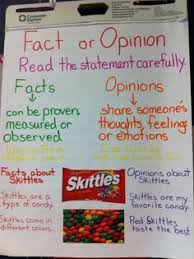 Fact or Opinion
Read the statement carefully.
Facts
can be proven,
measured or
observed.
Opinions
share someone's
thoughts, feelings,
or emotions
Facts about
Skittles
Skittles are a
type of candy.
Skittles come in
different colors.
Skittles
Opinions about
Skittles
Skittles are my
favorite candy.
Red Skittles
taste the best.